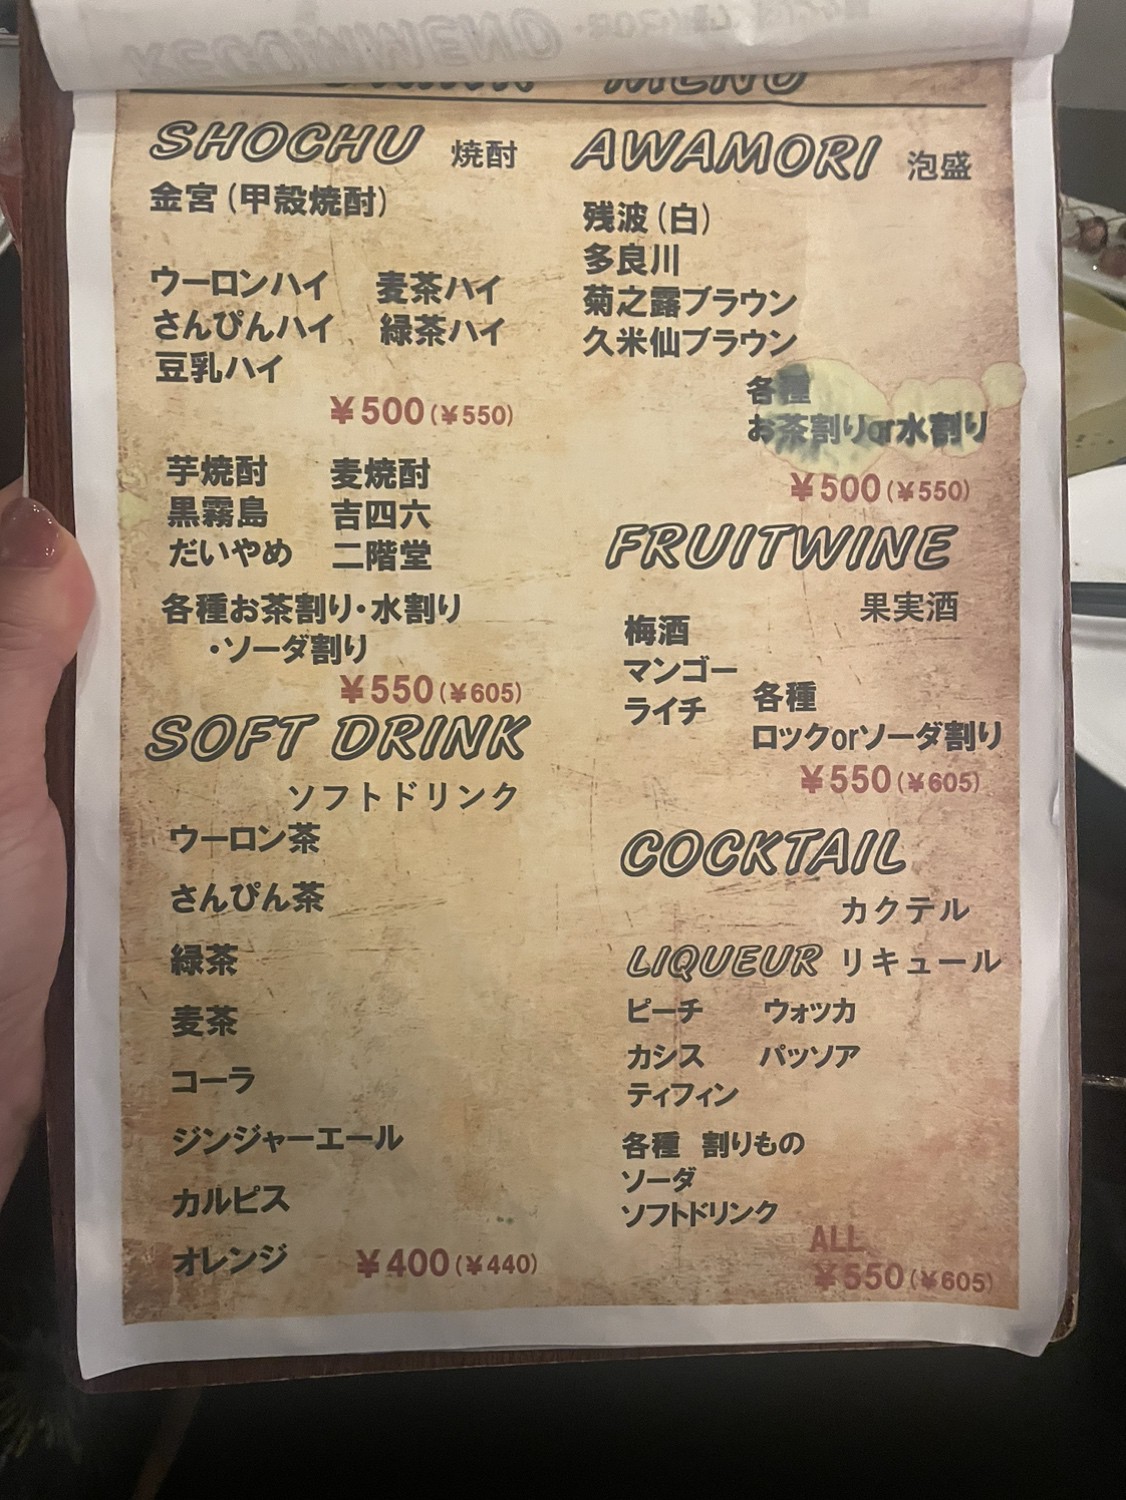 DRINK MENU
SHOCHU 焼酎
金宮(甲殻焼酎)
ウーロンハイ 麦茶ハイ
さんぴんハイ 緑茶ハイ
豆乳ハイ
¥500(¥550)
芋焼酎 麦焼酎
黒霧島 吉四六
だいやめ 二階堂
各種お茶割り・水割り
・ソーダ割り
¥550(¥605)
SOFT DRINK
ソフトドリンク
ウーロン茶
さんぴん茶
緑茶
麦茶
コーラ
ジンジャーエール
カルピス
オレンジ ¥400(¥440)
AWAMORI 泡盛
残波(白)
多良川
菊之露ブラウン
久米仙ブラウン
各種
お茶割りor水割り
¥500(¥550)
FRUITWINE
果実酒
梅酒
マンゴー
ライチ 各種
ロックorソーダ割り
¥550(¥605)
COCKTAIL
カクテル
LIQUEUR リキュール
ピーチ ウォッカ
カシス パッソア
ティフィン
各種 割りもの
ソーダ
ソフトドリンク
ALL
¥550(¥605)